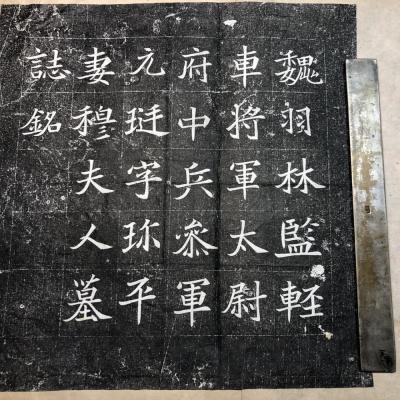 魏羽林監軽
車將軍太尉
府中兵叅軍
元珽字珎平
妻穆夫人墓
誌銘